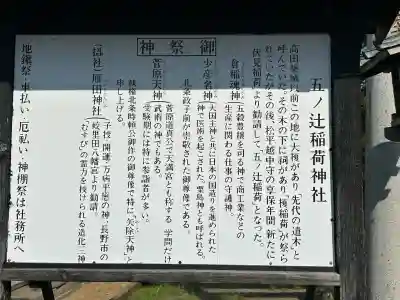 五ノ辻稲荷神社
高田築城以前この地に大榎があり、先代の遺木と
呼んでいた。その木の下に祠があり「榎稲荷」が祭ら
れていた。その後、松平越中守の享保年間、新たに
伏見稲荷より勧請して「五ノ辻稲荷」となった。
御祭神
倉稲魂神
五穀豊穣を司る神で商工業などの
生産に関わる仕事の守護神。
少彦名神
大国主神と共に日本の国造りを進められた
神で医術を起こされた。粟島神とも呼ばれる。
北条政子前が崇敬された御尊像である。
菅原天神
菅原道真公で天満宮とも称する 学問だけ
武術の神でもある。
受験期には特に参詣者が多い。
執権北条時頼公御作の御尊像で特に「矢除天神」と
申し上げる。
合殿社「雁田神社」
子授、開運、万病平癒の神、長野市の
東里田八幡宮より勧請。
「むすび」の霊力を授けられる造化三神
地鎮祭・車払い・厄払い・神棚祭は社務所へ